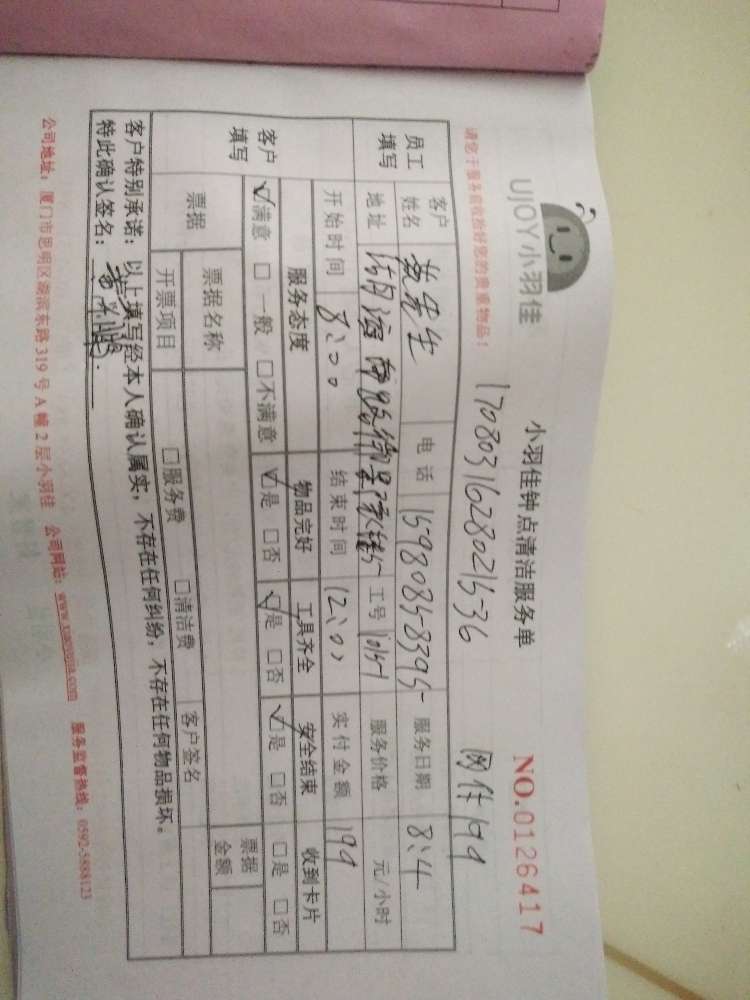 UJOY小羽佳
小羽佳钟点清洁服务单
NO.0126417
请您于服务前收拾好您的贵重物品！
网付199
员工填写
客户姓名
电话
服务日期 8:4
地址
工号
服务价格 元/小时
开始时间 8:00 结束时间 12:00 实付金额 199
客户填写
服务态度 物品完好 工具齐全 安全结束 收到卡片
☑满意 □一般 □不满意 ☑是 □否 ☑是 □否 ☑是 □否 □是 □否
票据
票据名称
票据金额
开票项目 □服务费 □清洁费 客户签名
客户特别承诺：以上填写经本人确认属实，不存在任何纠纷，不存在任何物品损坏。
特此确认签名：
公司地址：厦门市思明区湖滨东路319号A幢2层小羽佳 公司网站：www.xiaoyujia.com 服务监督热线：0592-5888123